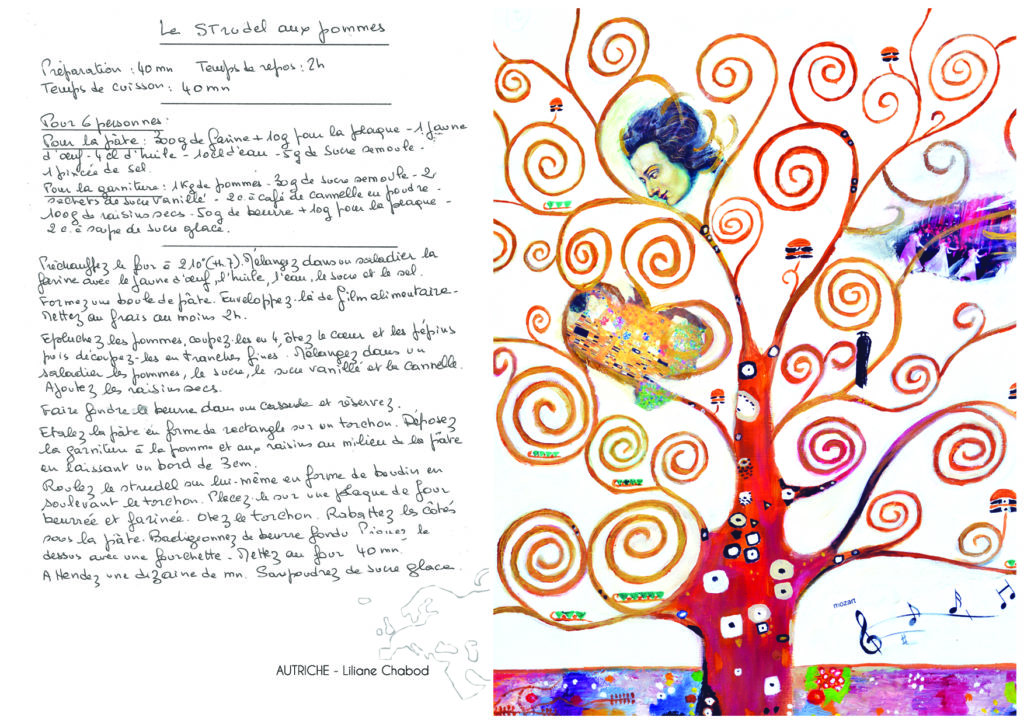 Le STrudel aux pommes
Préparation : 40 mn Temps de repos : 2h
Temps de cuisson : 40 mn
Pour 6 personnes :
Pour la pâte : 300g de farine + 10g pour la plaque - 1 jaune
d'œuf - 4 cl d'huile - 10 cl d'eau - 5g de sucre semoule -
1 pincée de sel.
Pour la garniture : 1 Kg de pommes - 30g de sucre semoule - 2
sachets de sucre vanillé - 2 c. à café de cannelle en poudre -
100g de raisins secs - 50g de beurre + 10g pour la plaque -
2 c. à soupe de sucre glace.
Préchauffez le four à 210° (th 7). Mélangez dans un saladier la
farine avec le jaune d'œuf, l'huile, l'eau, le sucre et le sel.
Formez une boule de pâte. Enveloppez-là de film alimentaire -
Mettez au frais au moins 2h.
Epluchez les pommes, coupez-les en 4, ôtez le cœur et les pépins
puis découpez-les en tranches fines. Mélangez dans un
saladier les pommes, le sucre, le sucre vanillé et la cannelle.
Ajoutez les raisins secs.
Faire fondre le beurre dans une casserole et réservez.
Etalez la pâte en forme de rectangle sur un torchon. Déposez
la garniture à la pomme et aux raisins au milieu de la pâte
en laissant un bord de 3 cm.
Roulez le strudel sur lui-même en forme de boudin en
soulevant le torchon. Placez-le sur une plaque de four
beurrée et farinée. Otez le torchon. Rabattez les côtés
sous la pâte. Badigeonnez de beurre fondu Piquez le
dessus avec une fourchette - Mettez au four 40 mn.
Attendez une dizaine de mn. Saupoudrez de sucre glace.
AUTRICHE - Liliane Chabod
mozart